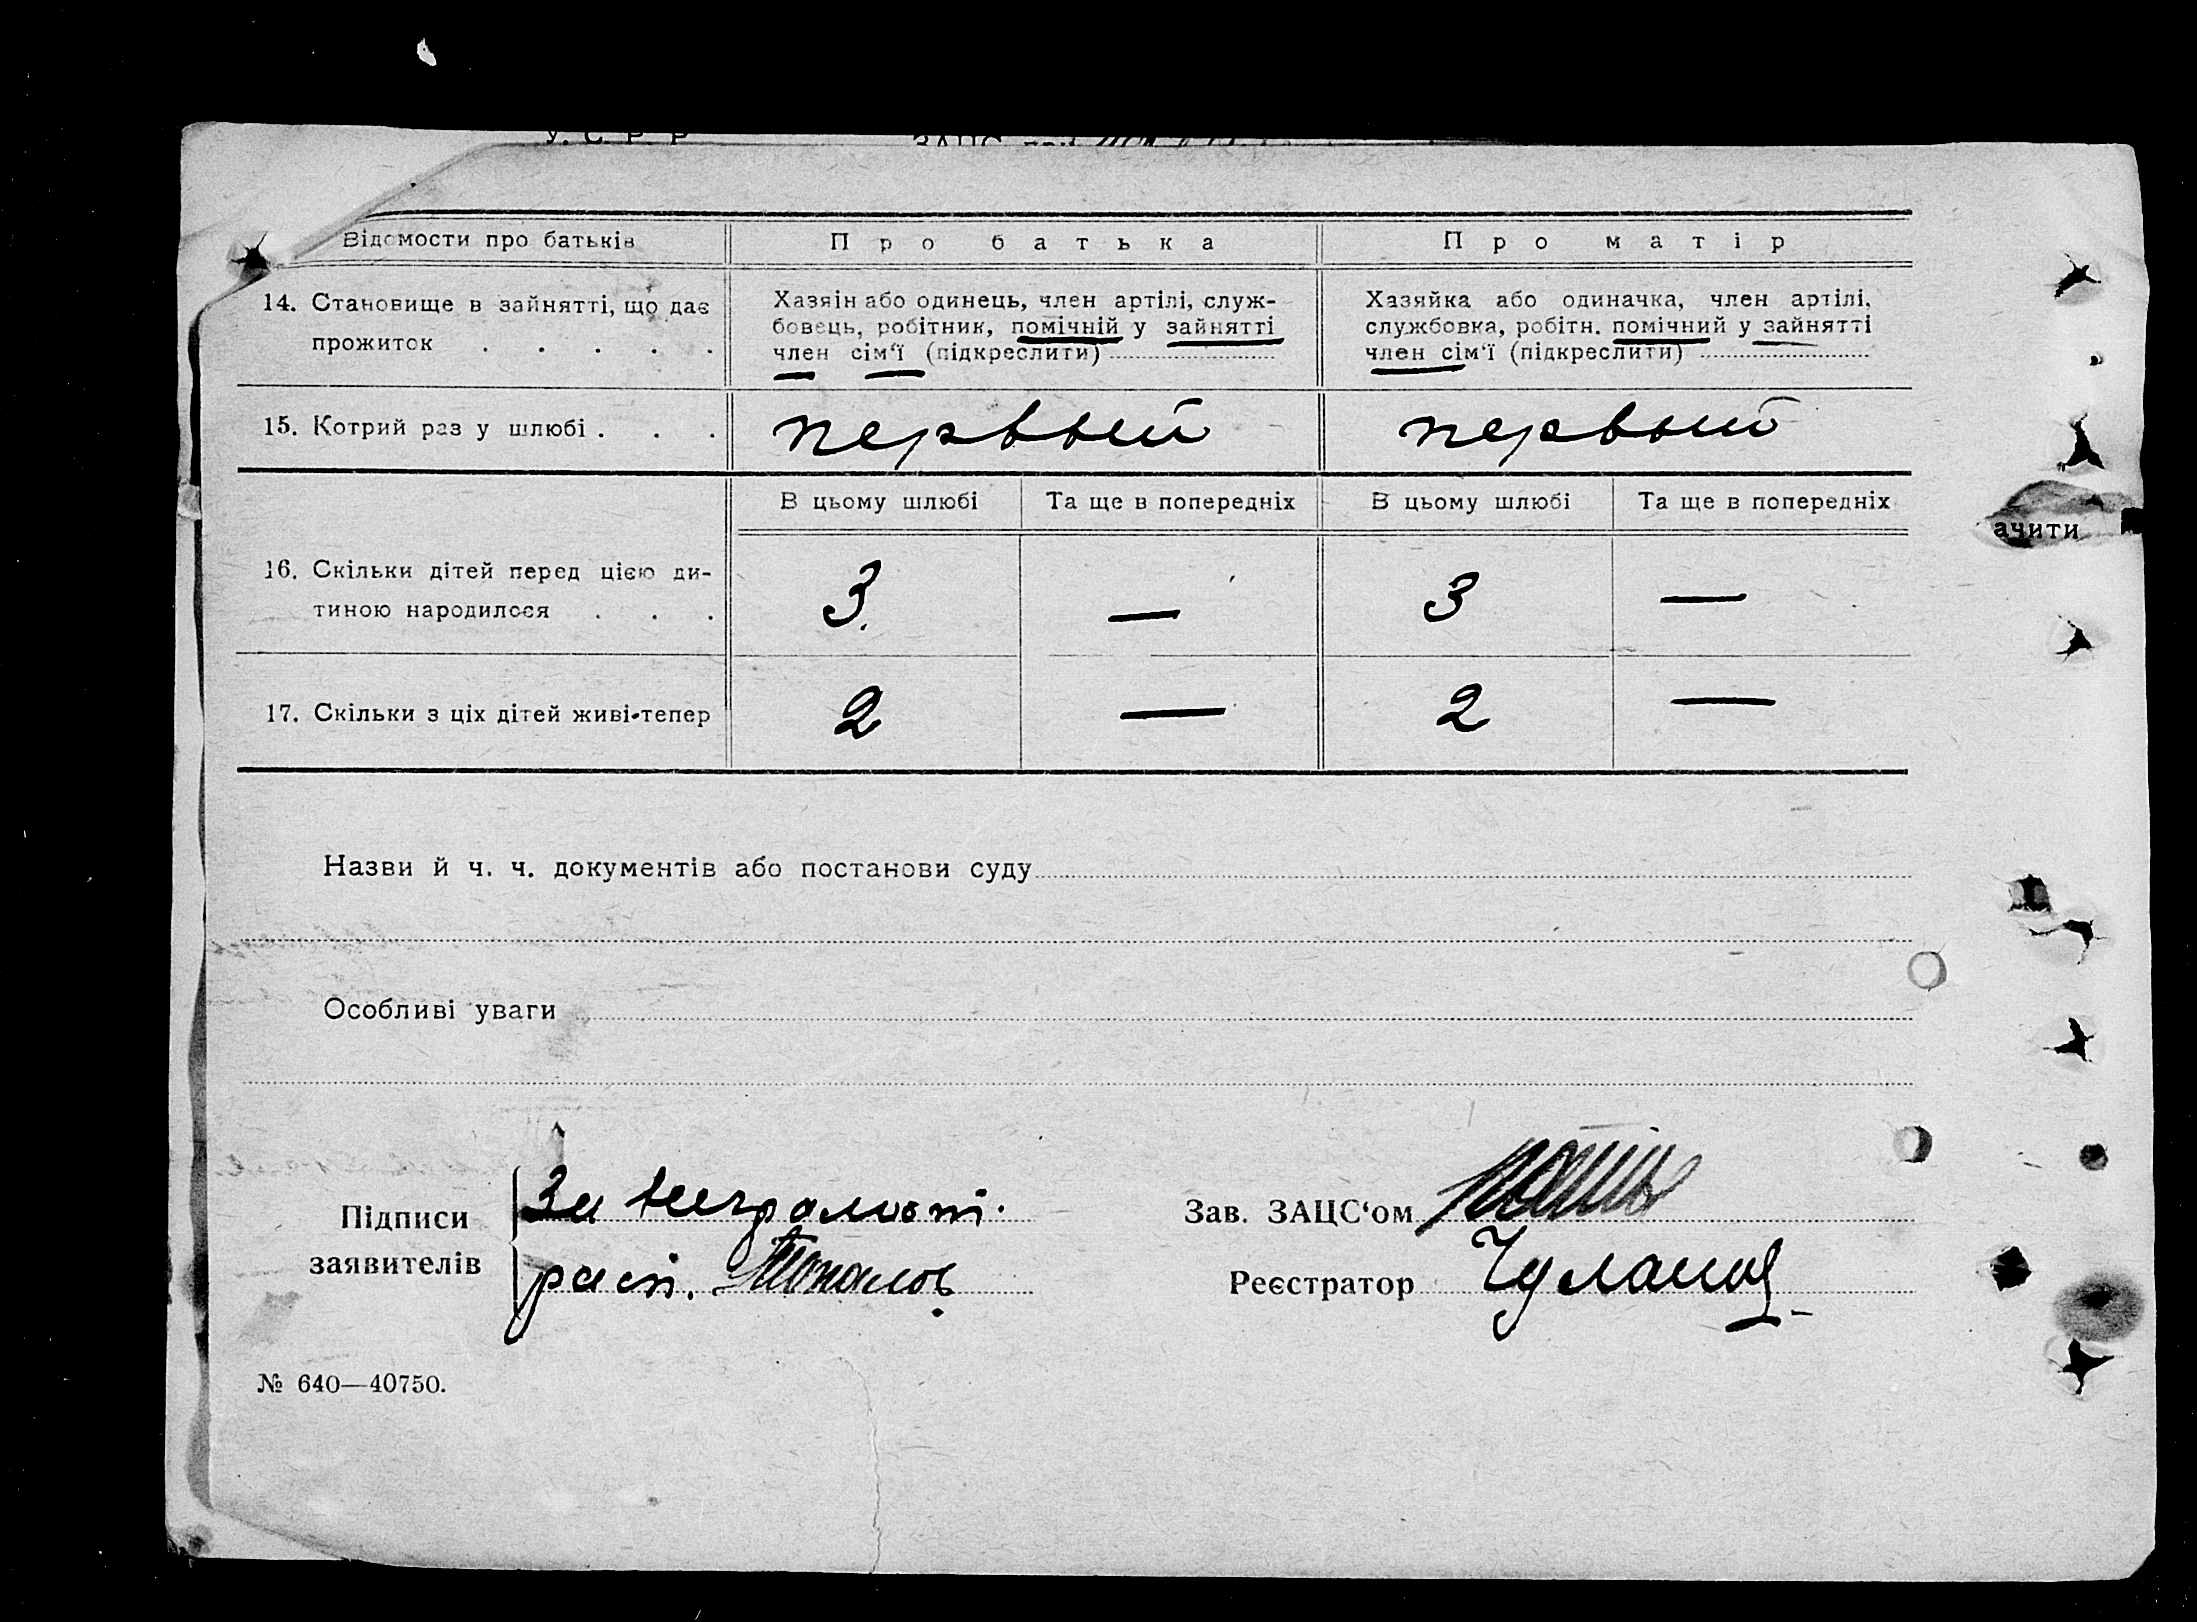 У. С. Р. Р.
ЗАЦС при
Відомости про батьків
Про батька
Про матір
14. Становище в зайнятті, що дає
прожиток . . . . .
Хазяін або одинець, член артілі, служ-
бовець, робітник, помічній у зайнятті
член сім'ї (підкреслити)
Хазяйка або одиначка, член артілі,
службовка, робітн. помічний у зайнятті
член сім'ї (підкреслити)
15. Котрий раз у шлюбі . . .
первый
первый
В цьому шлюбі
Та ще в попередніх
В цьому шлюбі
Та ще в попередніх
ачити
16. Скільки дітей перед цією ди-
тиною народилося . . .
3.
—
3
—
17. Скільки з ціх дітей живі-тепер
2
—
2
—
Назви й ч. ч. документів або постанови суду
Особливі уваги
Підписи
заявителів
За неграмотн.
расп. Топалов
Зав. ЗАЦС'ом
Реєстратор
№ 640—40750.